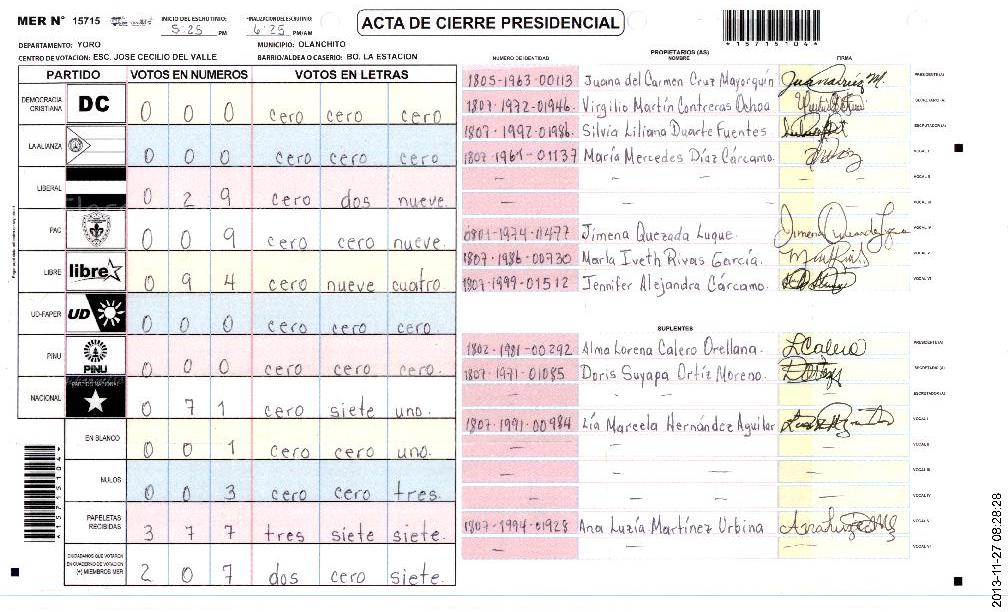 MER N° 15715
INICIO DEL ESCRUTINIO: 5:25 PM
FINALIZACION DEL ESCRUTINIO: 6:25 PM/AM
ACTA DE CIERRE PRESIDENCIAL
*15715104*
DEPARTAMENTO: YORO
MUNICIPIO: OLANCHITO
CENTRO DE VOTACION: ESC. JOSE CECILIO DEL VALLE
BARRIO/ALDEA O CASERIO: BO. LA ESTACION
PARTIDO VOTOS EN NUMEROS VOTOS EN LETRAS
DEMOCRACIA CRISTIANA DC 0 0 0 cero cero cero
LA ALIANZA 0 0 0 cero cero cero
LIBERAL 0 2 9 cero dos nueve
PAC 0 0 9 cero cero nueve.
LIBRE libre 0 9 4 cero nueve cuatro
UD-FAPER UD 0 0 0 cero cero cero.
PINU PINU 0 0 0 cero cero cero.
NACIONAL PARTIDO NACIONAL 0 7 1 cero siete uno.
EN BLANCO 0 0 1 cero cero uno.
NULOS 0 0 3 cero cero tres.
PAPELETAS RECIBIDAS 3 7 7 tres siete siete.
CIUDADANOS QUE VOTARON EN CUADERNO DE VOTACION (+) MIEMBROS MER 2 0 7 dos cero siete.
*15715104*
PROPIETARIOS (AS)
NUMERO DE IDENTIDAD NOMBRE FIRMA
1805-1963-00113 Juana del Carmen Cruz Mayorquín PRESIDENTE(A)
1807-1972-01946 Virgilio Martín Contreras Ochoa SECRETARIO(A)
1807-1992-01986 Silvia Liliana Duarte Fuentes ESCRUTADOR(A)
1807-1961-01137 María Mercedes Díaz Cárcamo. VOCAL I
— — — — VOCAL II
— — — VOCAL III
0801-1974-11477 Jimena Quezada Luque. VOCAL IV
1807-1986-00730 Marla Iveth Rivas García. VOCAL V
1807-1999-01512 Jennifer Alejandra Cárcamo. VOCAL VI
SUPLENTES
1802-1981-00292 Alma Lorena Calero Orellana. LCalero PRESIDENTE(A)
1807-1971-01085 Doris Suyapa Ortíz Moreno. SECRETARIO(A)
— — — ESCRUTADOR(A)
1807-1991-00984 Lía Marcela Hernández Aguilar VOCAL I
— — — VOCAL II
— — — VOCAL III
— — — VOCAL IV
1807-1994-01928 Ana Luzía Martínez Urbina VOCAL V
— — — VOCAL VI
2013-11-27 08:28:28